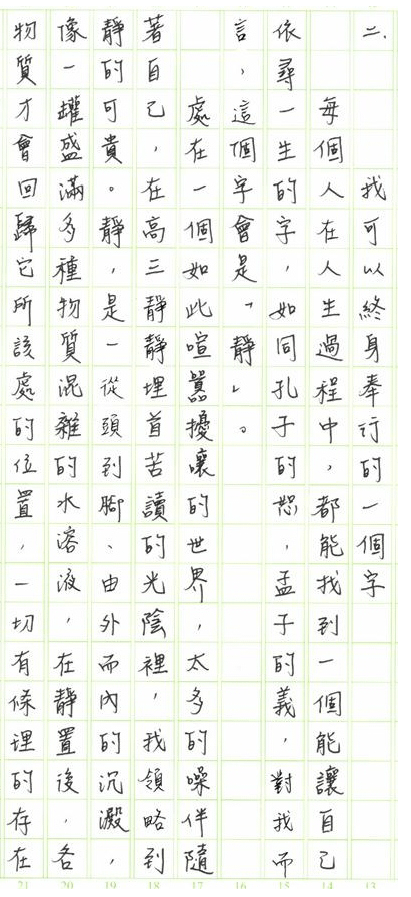 二、我可以終身奉行的一個字
每個人在人生過程中，都能找到一個能讓自己
依尋一生的字，如同孔子的恕，孟子的義，對我而
言，這個字會是「靜」。
處在一個如此喧囂擾嚷的世界，太多的噪伴隨
著自己，在高三靜靜埋首苦讀的光陰裡，我領略到
靜的可貴。靜，是一從頭到腳、由外而內的沉澱，
像一罐盛滿多種物質混雜的水溶液，在靜置後，各
物質才會回歸它所該處的位置，一切有條理的存在
21 20 19 18 17 16 15 14 13